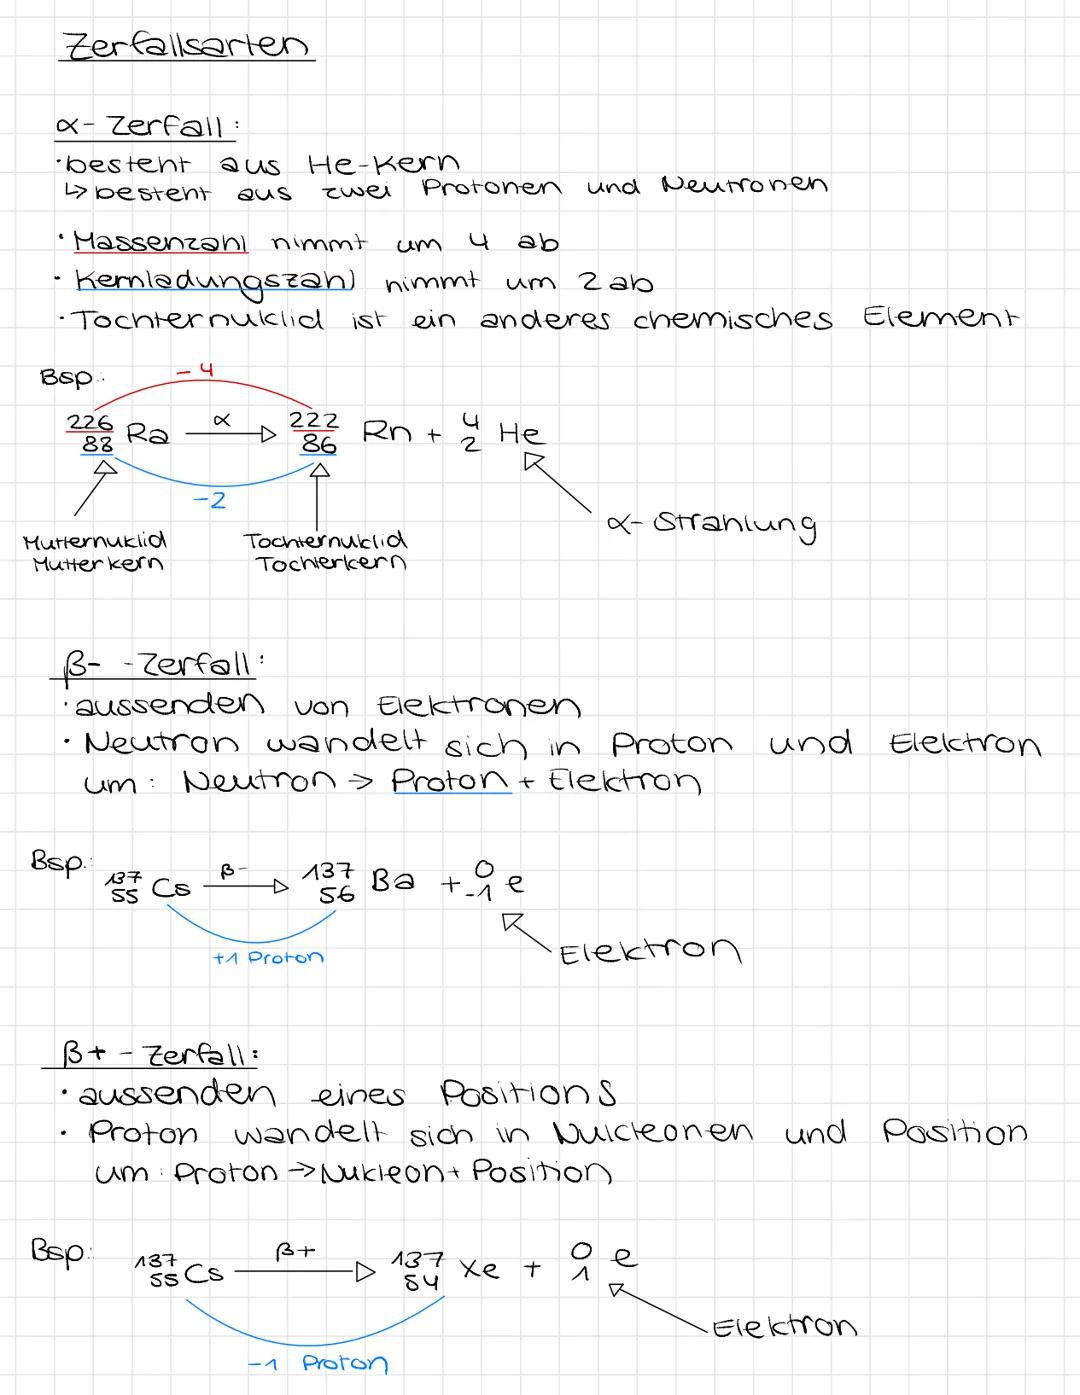 Zerfallsarten
α- Zerfall:
• besteht aus He-Kern
↳ besteht aus zwei Protonen und Neutronen
• Massenzahl nimmt um 4 ab
• Kernladungszahl nimmt um 2 ab
• Tochternuklid ist ein anderes chemisches Element
Bsp.: -4
226 88 Ra α → 222 86 Rn + 4 2 He
-2
α- Strahlung
Mutternuklid Tochternuklid
Mutterkern Tochterkern
β- -Zerfall:
• aussenden von Elektronen
• Neutron wandelt sich in Proton und Elektron
um: Neutron → Proton + Elektron
Bsp.: 137 55 Cs β- → 137 56 Ba + 0 -1 e
Elektron
+1 Proton
β+ - Zerfall:
• aussenden eines Positions
• Proton wandelt sich in Nukleonen und Position
um: Proton → Nukleon + Position
Bsp.: 137 55 Cs β+ → 137 54 Xe + 0 1 e
Elektron
-1 Proton